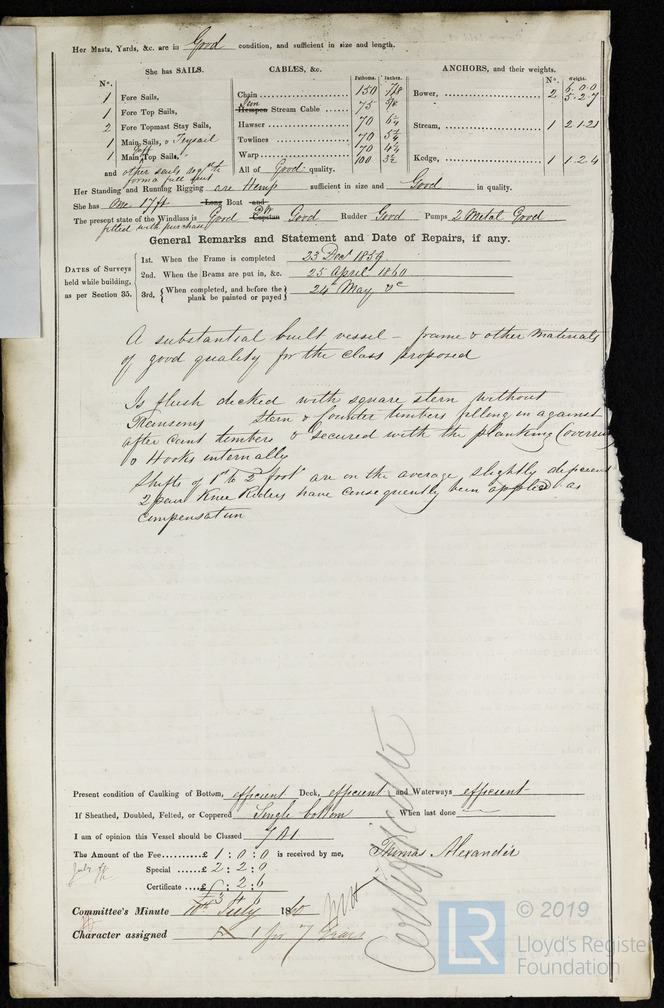 Her Masts, Yards, &c. are in Good condition, and sufficient in size and length.
She has SAILS.
N°.
1 Fore Sails,
1 Fore Top Sails,
2 Fore Topmast Stay Sails,
1 Main Sails, & Trysail
1 Main Gaff Top Sails,
and other sails reqd to
form a full suit
CABLES, &c.
Fathoms. Inches.
Chain 150 7/8
Hempen Stream Cable 75
Hawser 70
Towlines 70
70
Warp 100 3½
All of Good quality.
ANCHORS, and their weights.
N°. Weight.
Bower, 2 6.0.0
5.2.7
Stream, 1 2.1.21
Kedge, 1 1.2.4
Her Standing and Running Rigging are Hemp sufficient in size and Good in quality.
She has One 17 ft Long Boat and
The present state of the Windlass is Good Capstan Good Rudder Good Pumps 2 Metal Good
fitted with purchase
General Remarks and Statement and Date of Repairs, if any.
DATES of Surveys
held while building,
as per Section 35.
1st. When the Frame is completed 23 Decr 1859
2nd. When the Beams are put in, &c. 25 April 1860
3rd, { When completed, and before the plank be painted or payed } 24th May
A substantial built vessel – frame & other materials
of good quality for the class proposed
Is flush decked with square stern without
Transoms Stern & Counter timbers filling in against
after cant timbers & secured with the planking Covering
& Hooks internally
Shifts of 1st to 2 foot are on the average slightly deficient
2 pair Knee Riders have consequently been applied as
compensation
Present condition of Caulking of Bottom, efficient Deck, efficient and Waterways efficient
If Sheathed, Doubled, Felted, or Coppered Single bottom When last done —
I am of opinion this Vessel should be Classed 7 A1
The Amount of the Fee...........£ 1 : 0 : 0 is received by me, Thomas Alexander
Special ......£ 2 : 2 : 0
Certificate ....£ : 2 : 6
Committee's Minute July 1860
Character assigned A 1 for 7 Years
Certificate
© 2019
LR
Lloyd's Register
Foundation